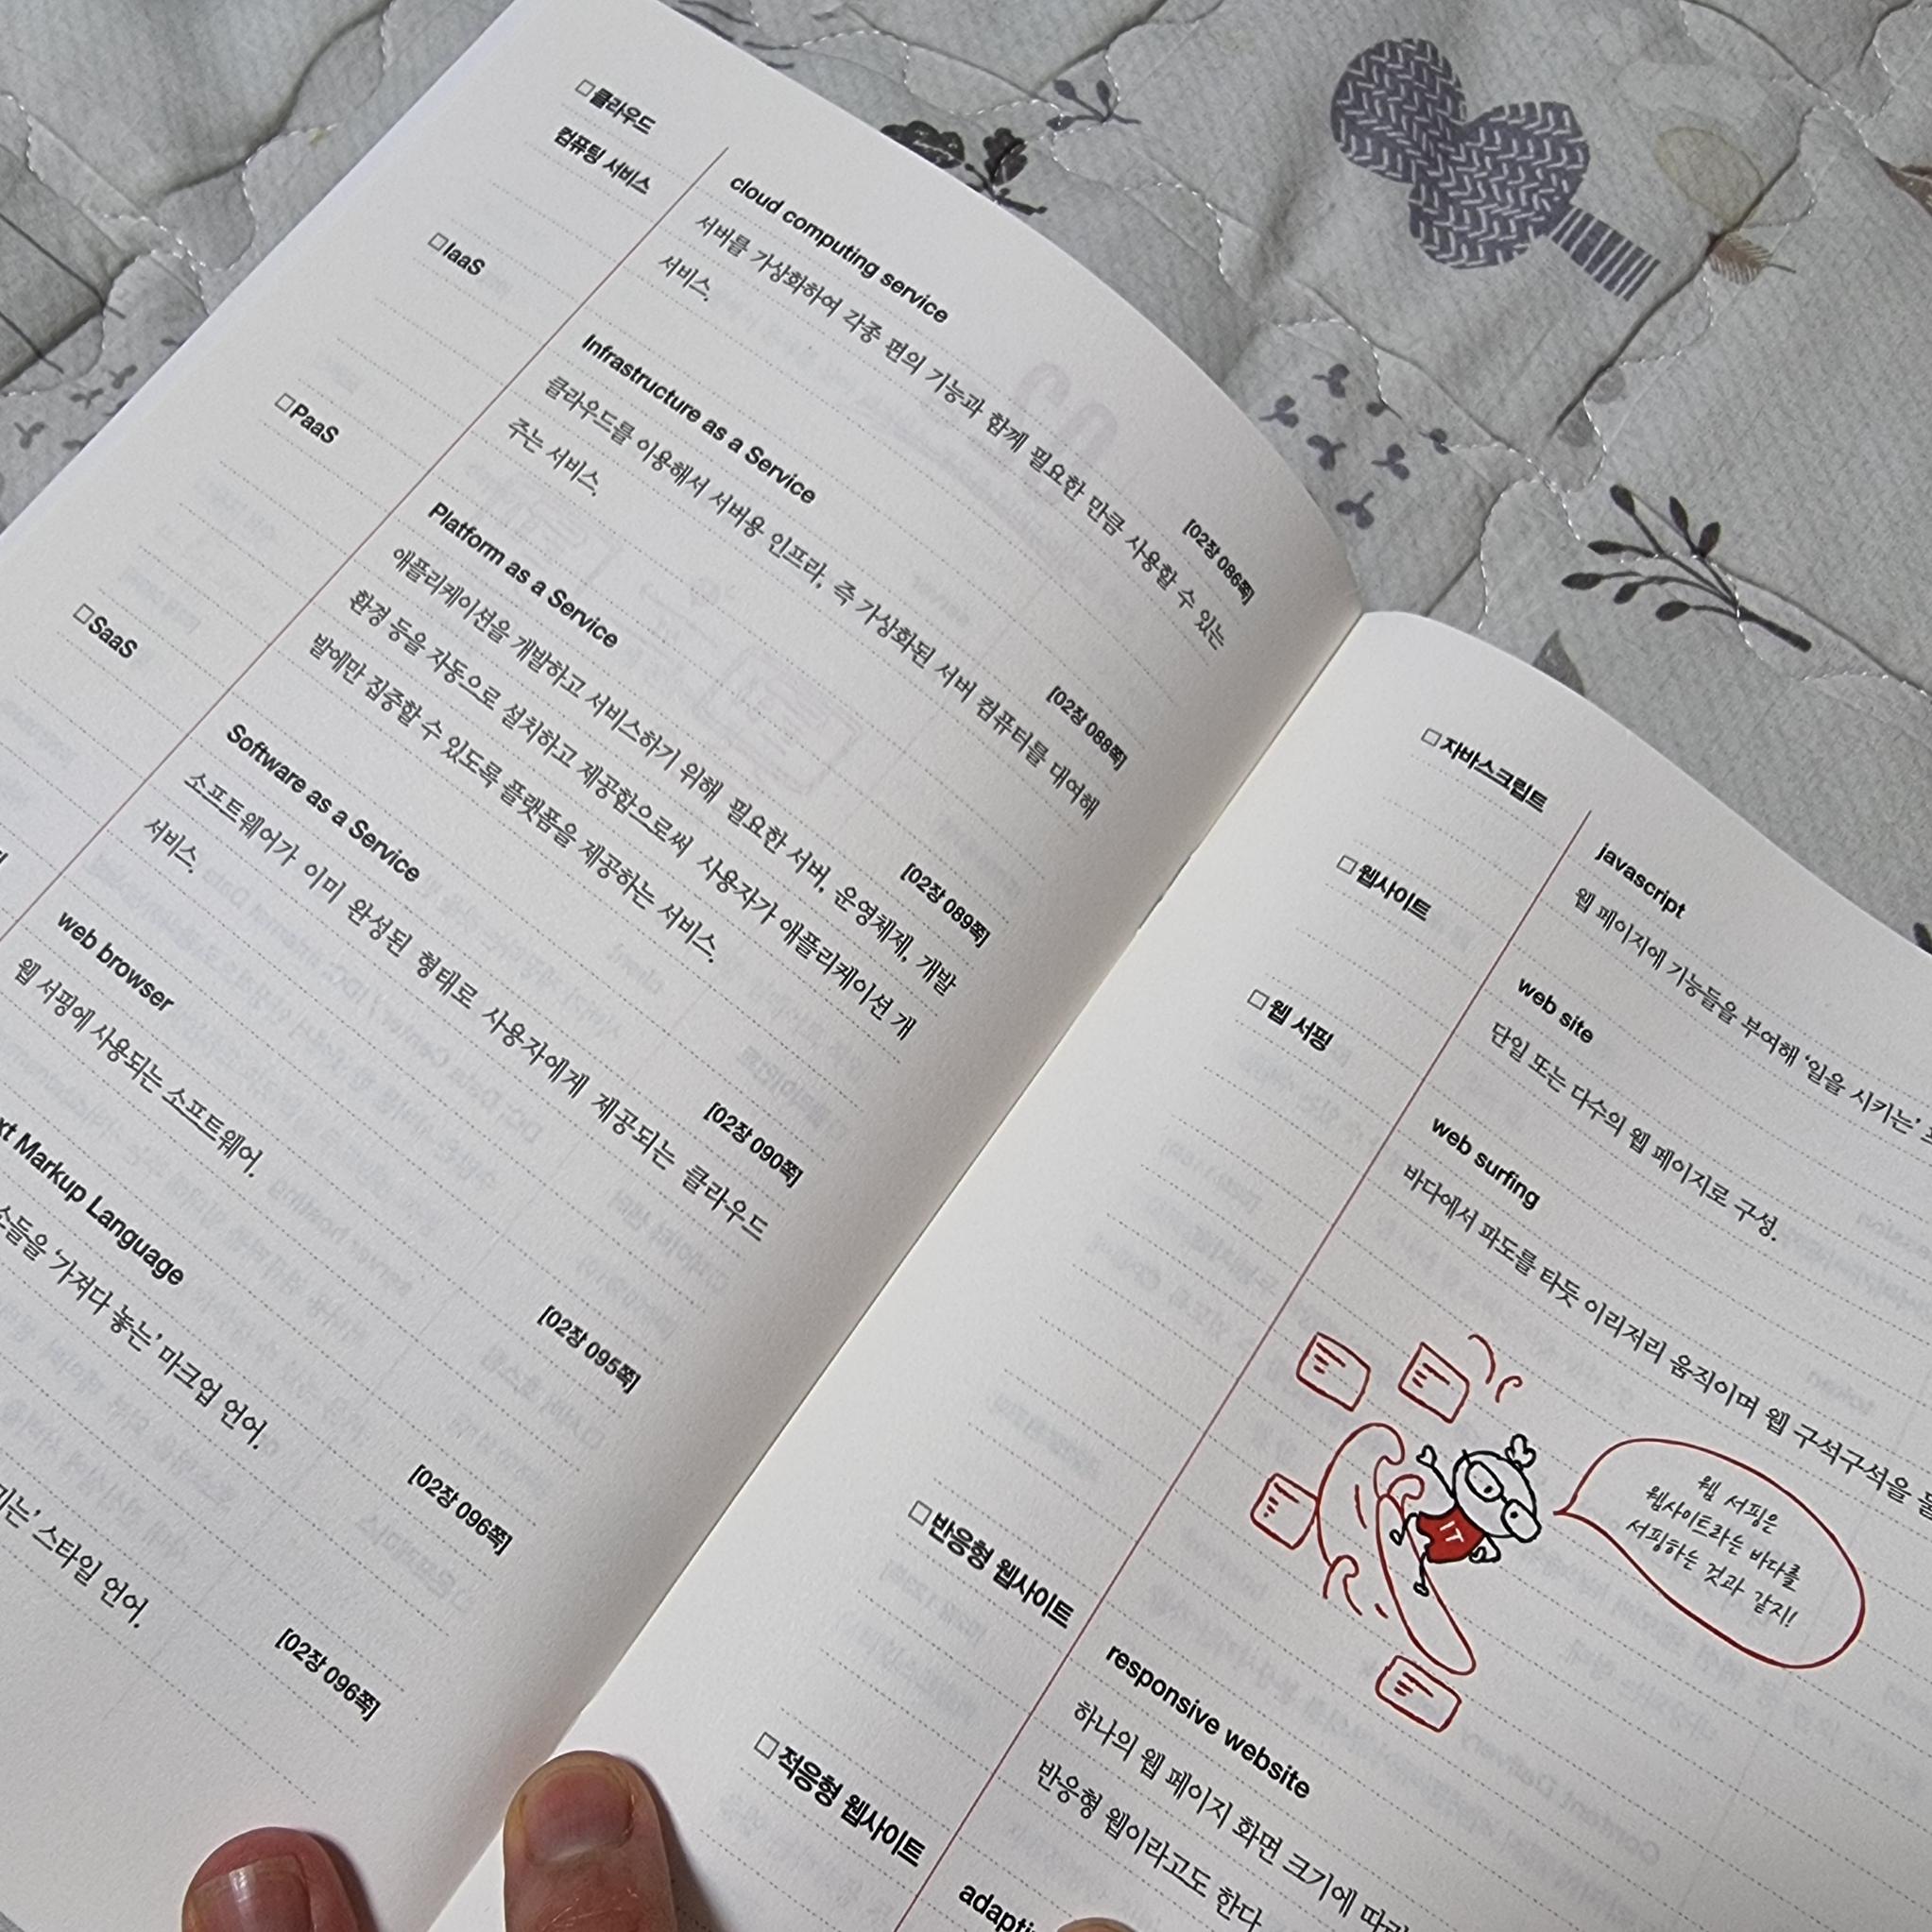 □클라우드
컴퓨팅 서비스
cloud computing service
[02장 086쪽]
서버를 가상화하여 각종 편의 기능과 함께 필요한 만큼 사용할 수 있는
서비스.
□IaaS
Infrastructure as a Service
[02장 088쪽]
클라우드를 이용해서 서버용 인프라, 즉 가상화된 서버 컴퓨터를 대여해
주는 서비스.
□PaaS
Platform as a Service
[02장 089쪽]
애플리케이션을 개발하고 서비스하기 위해 필요한 서버, 운영체제, 개발
환경 등을 자동으로 설치하고 제공함으로써 사용자가 애플리케이션 개
발에만 집중할 수 있도록 플랫폼을 제공하는 서비스.
□SaaS
Software as a Service
[02장 090쪽]
소프트웨어가 이미 완성된 형태로 사용자에게 제공되는 클라우드
서비스.
web browser
[02장 095쪽]
웹 서핑에 사용되는 소프트웨어.
Markup Language
[02장 096쪽]
'가져다 놓는' 마크업 언어.
[02장 096쪽]
스타일 언어.
□자바스크립트
javascript
웹 페이지에 기능들을 부여해 '일을 시키는'
□웹사이트
web site
단일 또는 다수의 웹 페이지로 구성.
□웹 서핑
web surfing
바다에서 파도를 타듯 이리저리 움직이며 웹 구석구석을
IT
웹 서핑은
웹사이트라는 바다를
서핑하는 것과 같지!
□반응형 웹사이트
responsive website
하나의 웹 페이지 화면 크기에
반응형 웹이라고도 한다
□적응형 웹사이트